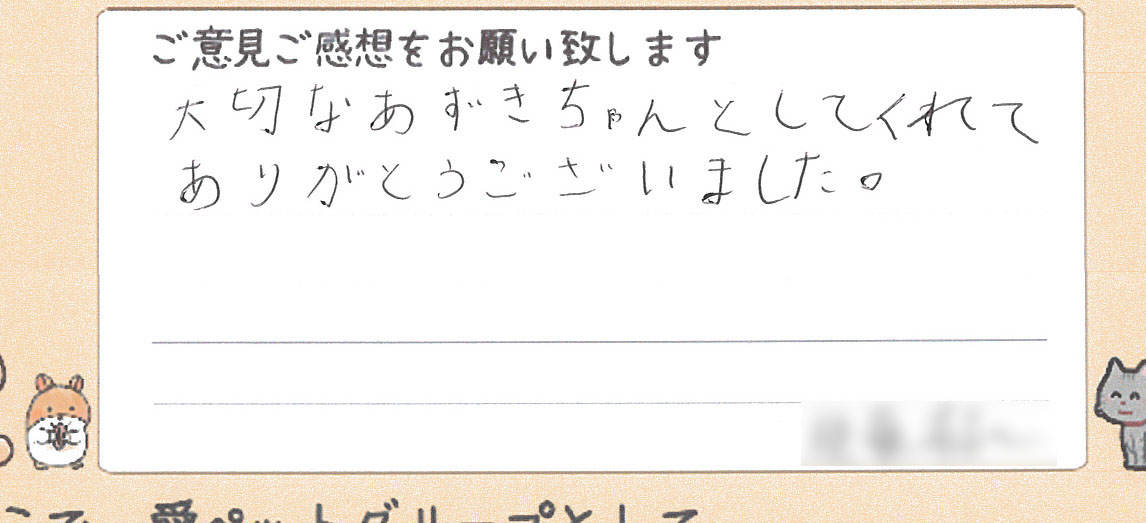 ご意見ご感想をお願い致します
大切なあずきちゃんとしてくれてて
ありがとうございました。
愛ペットグループとして